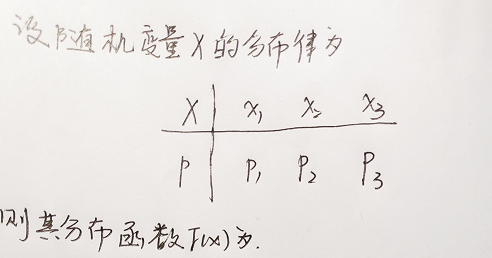 设随机变量X的分布律为
X x₁ x₂ x₃
P P₁ P₂ P₃
则其分布函数F(x)为.